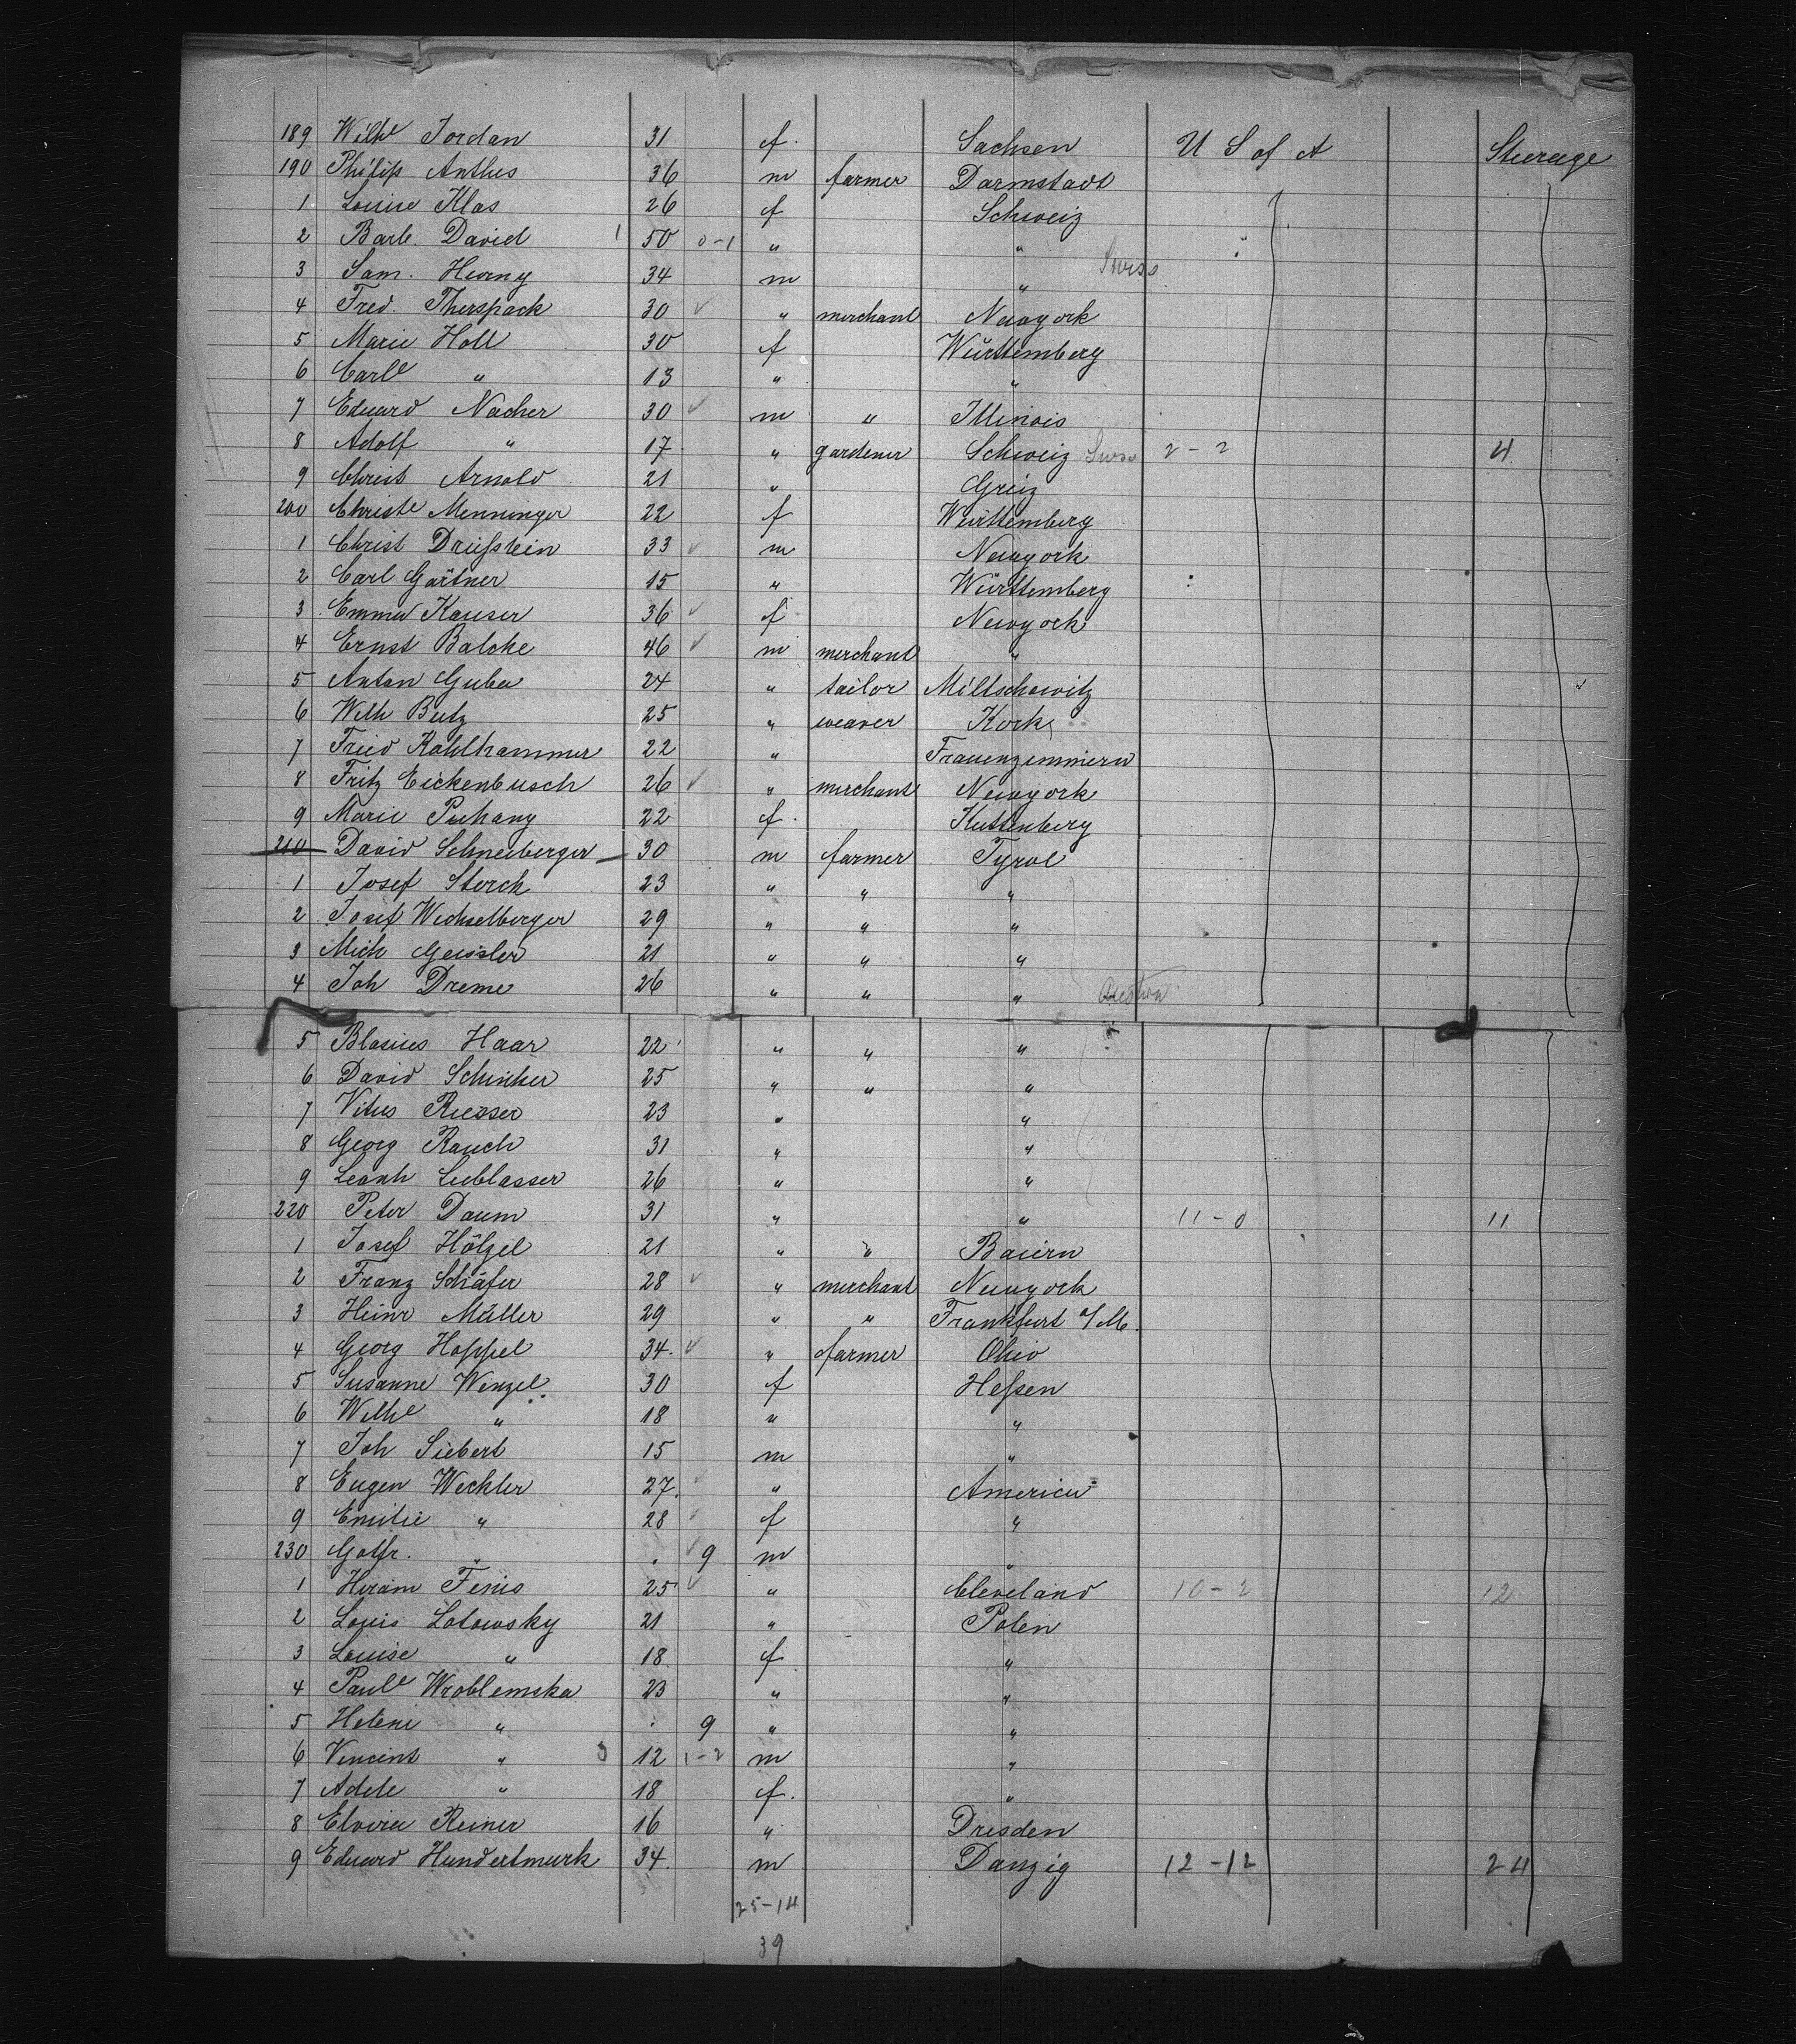 189 Wilhe Jordan 31 f. Sachsen U S of A Steerage
190 Philip Anthes 36 m farmer Darmstadt
1 Louise Klas 26 f Schweiz
2 Barb. David 1 50 0-1 " "
3 Sam. Hurny 34 m " Swiss
4 Fred. Therspack 30 ✓ " merchant Newyork
5 Marie Holl 30 f Württemberg
6 Carle " 13 " "
7 Eduard Nacher 30 ✓ m " Illinois
8 Adolf " 17 " gardener Schweiz Swiss 2-2 4
9 Christ Arnold 21 " Greiz
200 Christe Menninger 22 f Württemberg
1 Christ Drießtein 33 ✓ m Newyork
2 Carl Gärtner 15 " Württemberg
3 Emma Kauser 36 ✓ f Newyork
4 Ernst Balcke 46 ✓ m merchant "
5 Anton Guba 24 " tailor Miltschowitz "
6 Wilh Butz 25 " weaver Kork
7 Fried Kohlhammer 22 " Frauenzimmern
8 Fritz Eickenbusch 26 ✓ " merchant Newyork
9 Marie Puhany 22 f. Kuttenberg
210 David Schneeberger 30 m farmer Tyrol
1 Josef Storch 23 " " "
2 Josef Wechselberger 29 " " "
3 Mich Geissler 21 " " "
4 Joh Dreme 26 " " " Austria
5 Blasius Haar 22 " " "
6 David Schinker 25 " " "
7 Vitus Riesser 23 " "
8 Georg Rauch 31 " "
9 Leonh Lieblasser 26 " "
220 Peter Daum 31 " " 11-0 11
1 Josef Hölzel 21 " " Baiern
2 Franz Schäfer 28 ✓ " merchant Newyork
3 Heinr Müller 29 " " Frankfurt a/M.
4 Georg Hoppel 34. ✓ " farmer Ohio
5 Susanne Wenzel 30 f Heßen
6 Wilhe " 18 " "
7 Joh Siebert 15 m "
8 Eugen Weckler 27. ✓ " America
9 Emilie " 28 ✓ f "
230 Gotfr. " . ✓ 9 m "
1 Hiram Fenis 25 ✓ " Cleveland 10-2 12
2 Louis Lotowsky 21 " Polen
3 Louise " 18 f "
4 Paule Wroblemska 23 " "
5 Helene " . 9 " "
6 Vincent " 3 12 1-2 m "
7 Adele " 18 f. "
8 Elvira Reiner 16 " Dresden
9 Eduard Hundertmark 34. m Danzig 12-12 24
25-14
39